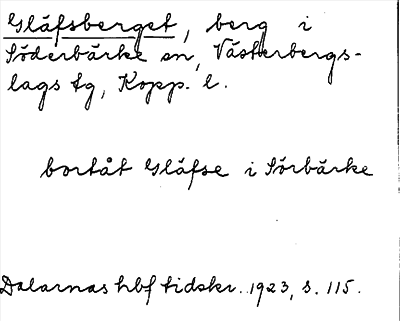 Gläfsberget, berg i
Söderbärke sn, Västerbergs-
lags tg, Kopp. l.
bortåt Gläfse i Sörbärke
Dalarnas hbf tidskr. 1923, s. 115.